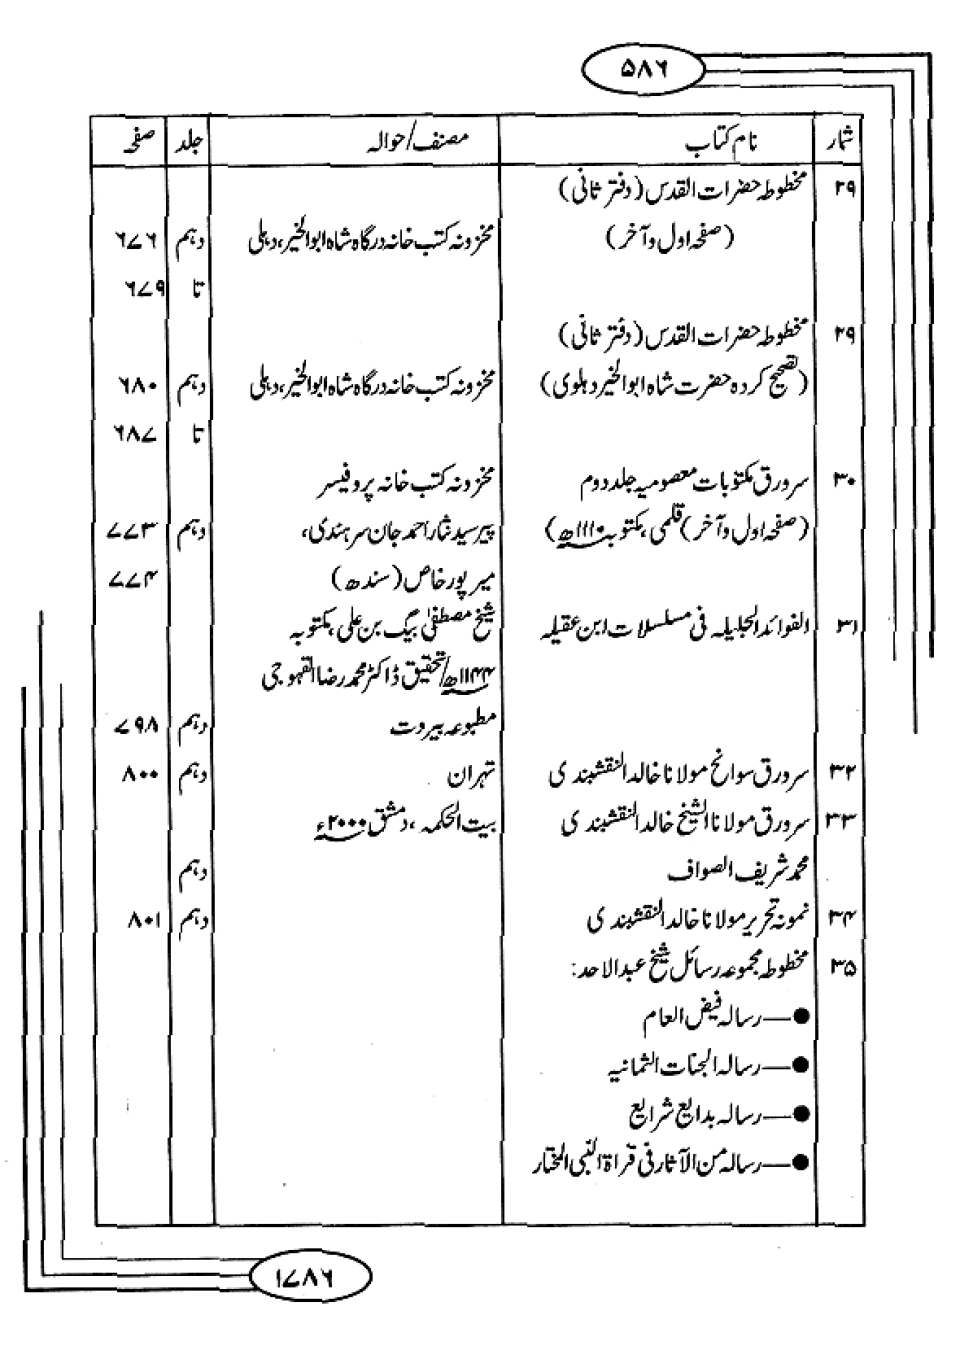 ۵۸۶
شمار نام کتاب مصنف/حوالہ جلد صفحہ
۲۹ مخطوطہ حضرات القدس (دفتر ثانی)
(صفحہ اول و آخر) مخزونہ کتب خانہ درگاہ شاہ ابوالخیر، دہلی دہم ۶۷۶
تا ۶۷۹
۲۹ مخطوطہ حضرات القدس (دفتر ثانی)
(تصحیح کردہ حضرت شاہ ابوالخیر دہلوی) مخزونہ کتب خانہ درگاہ شاہ ابوالخیر، دہلی دہم ۶۸۰
تا ۶۸۷
۳۰ سرورق مکتوبات معصومیہ جلد دوم مخزونہ کتب خانہ پروفیسر
(صفحہ اول و آخر) قلمی، مکتوبہ ۱۱۱۰ھ) پیر سید نثار احمد جان سرہندی، دہم ۷۷۳
میرپور خاص (سندھ) ۷۷۴
۳۱ الفوائد الجلیلہ فی مسلسلات ابن عقیلہ شیخ مصطفیٰ بیگ بن علی، مکتوبہ
۱۱۴۴ھ/تحقیق ڈاکٹر محمد رضا القہوجی
مطبوعہ بیروت دہم ۷۹۸
۳۲ سرورق سوانح مولانا خالد النقشبندی تہران دہم ۸۰۰
۳۳ سرورق مولانا الشیخ خالد النقشبندی بیت الحکمہ، دمشق ۲۰۰۰ء
محمد شریف الصواف دہم
۳۴ نمونہ تحریر مولانا خالد النقشبندی دہم ۸۰۱
۳۵ مخطوطہ مجموعہ رسائل شیخ عبدالاحد:
●—رسالہ فیض العام
●—رسالہ الجنات الثمانیہ
●—رسالہ بدایع شرایع
●—رسالہ من الآثار فی قراۃ النبی المختار
۱۷۸۶